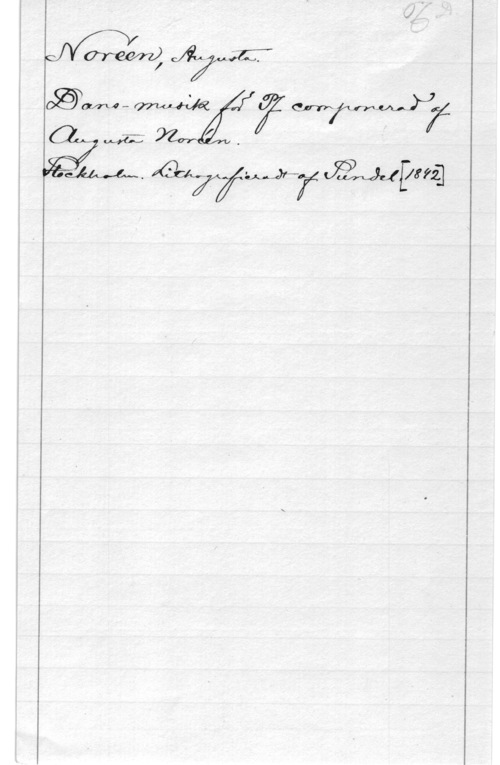 Noréen, Augusta.
Dans-musik för Pf componerad af
Augusta Noréen.
Stockholm. Lithograficradt af [1842]